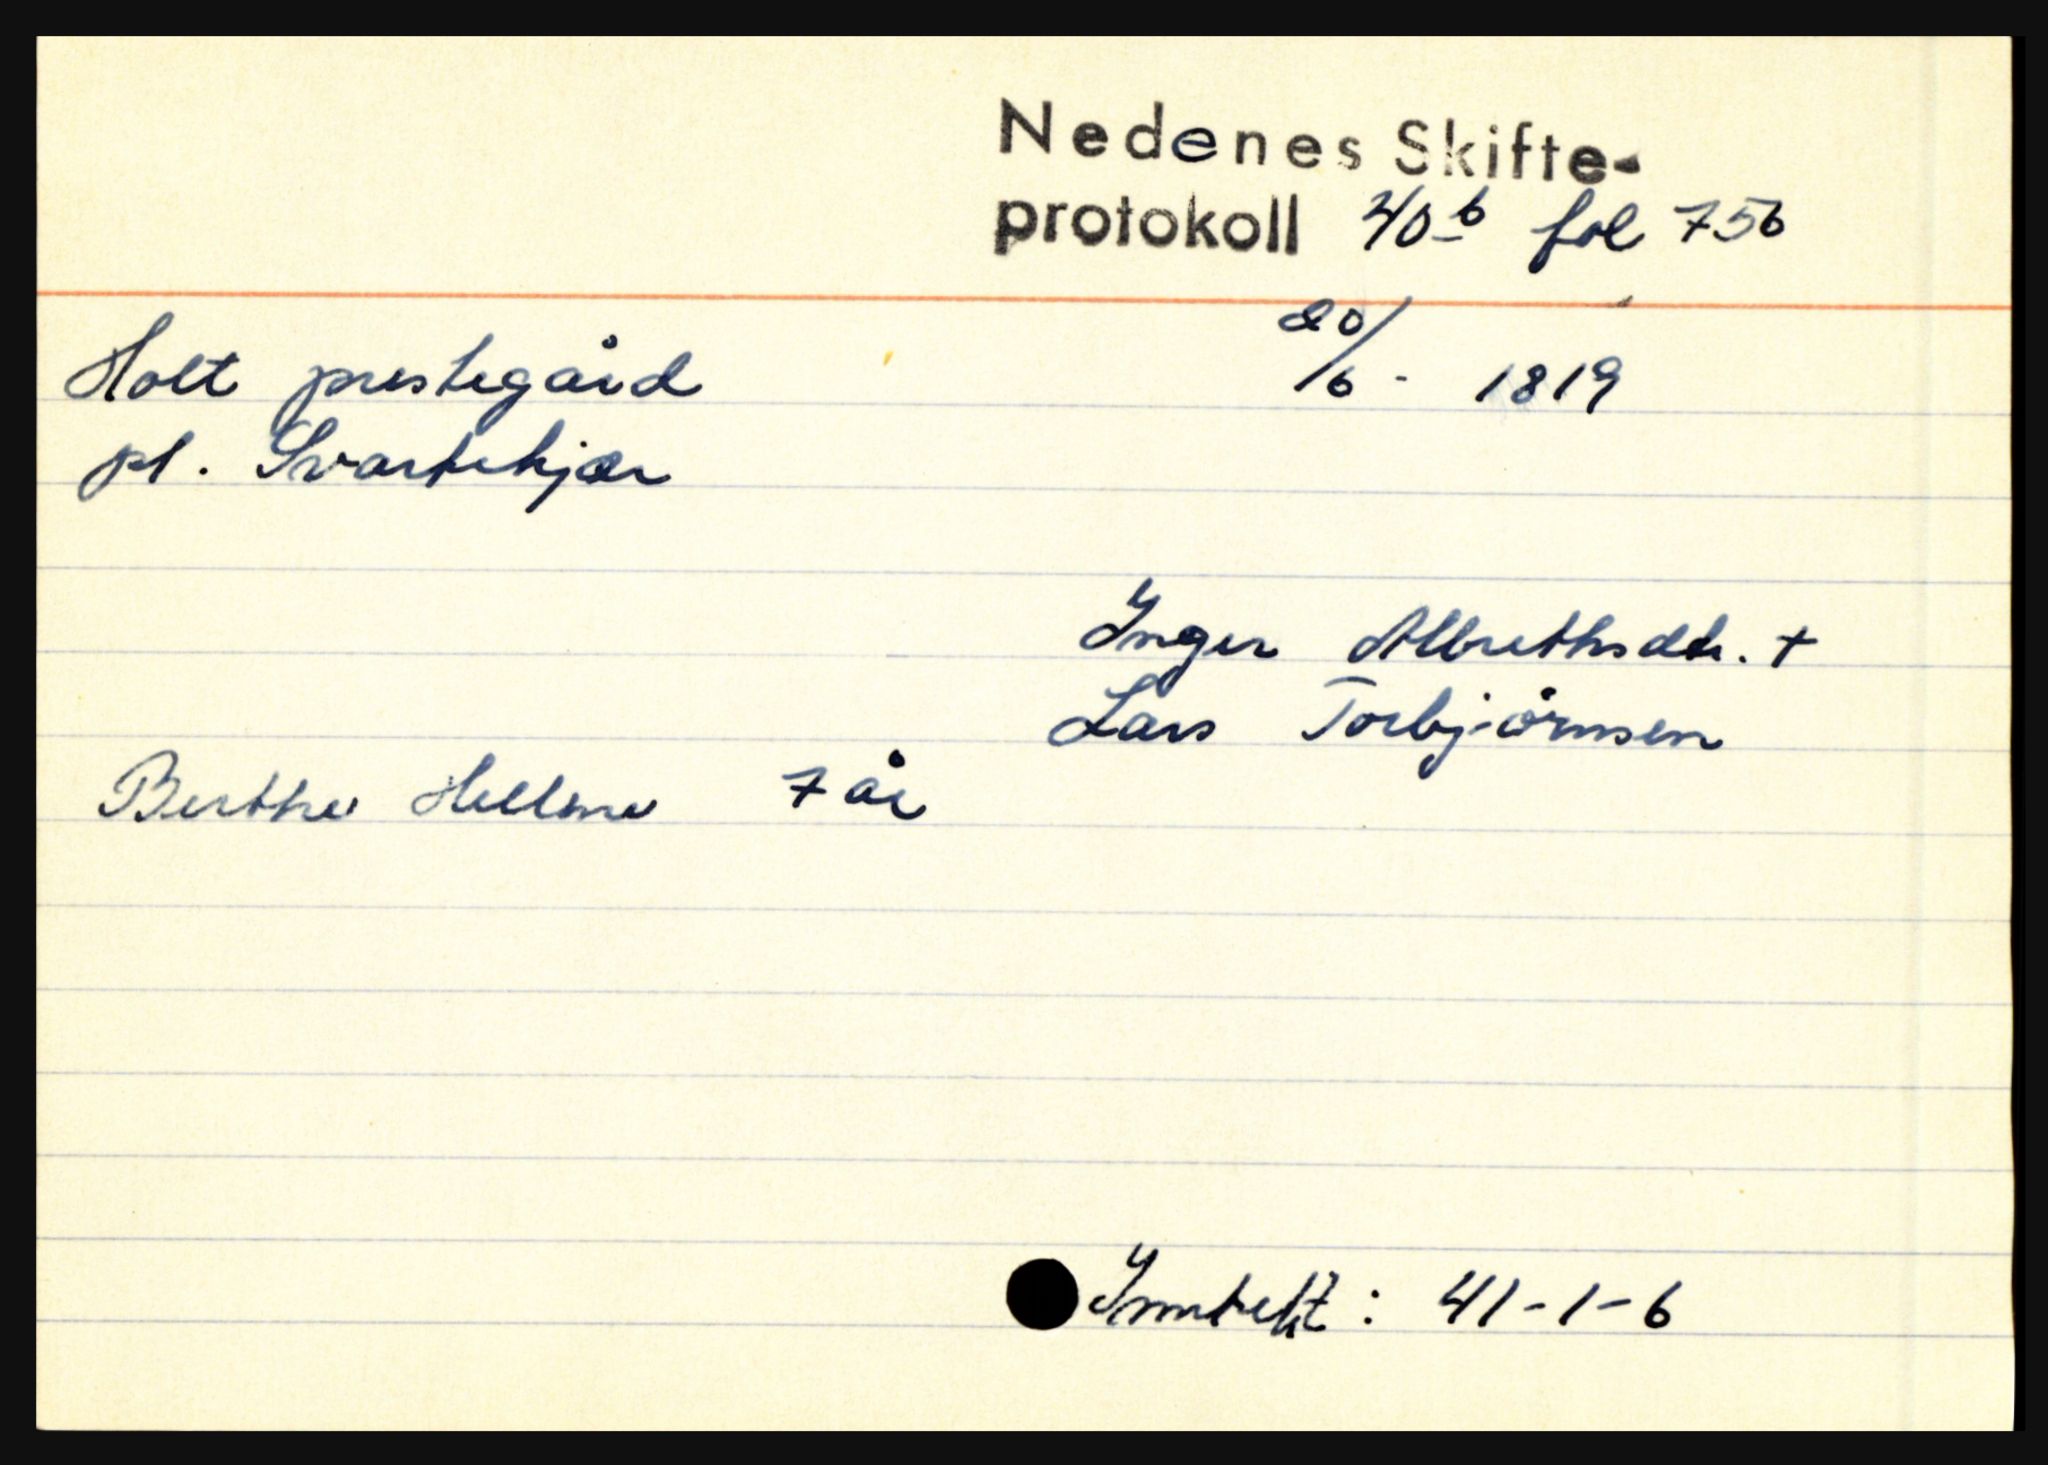 Nedenes Skifte-
protokoll 40 b fol 756
Holt prestegård 20/6 - 1819
pl. Svartekjær
Inger Albrethsdtr. +
Lars Torbjörnsen
Berthe Hellene 7 år
Inntekt : 41-1-6